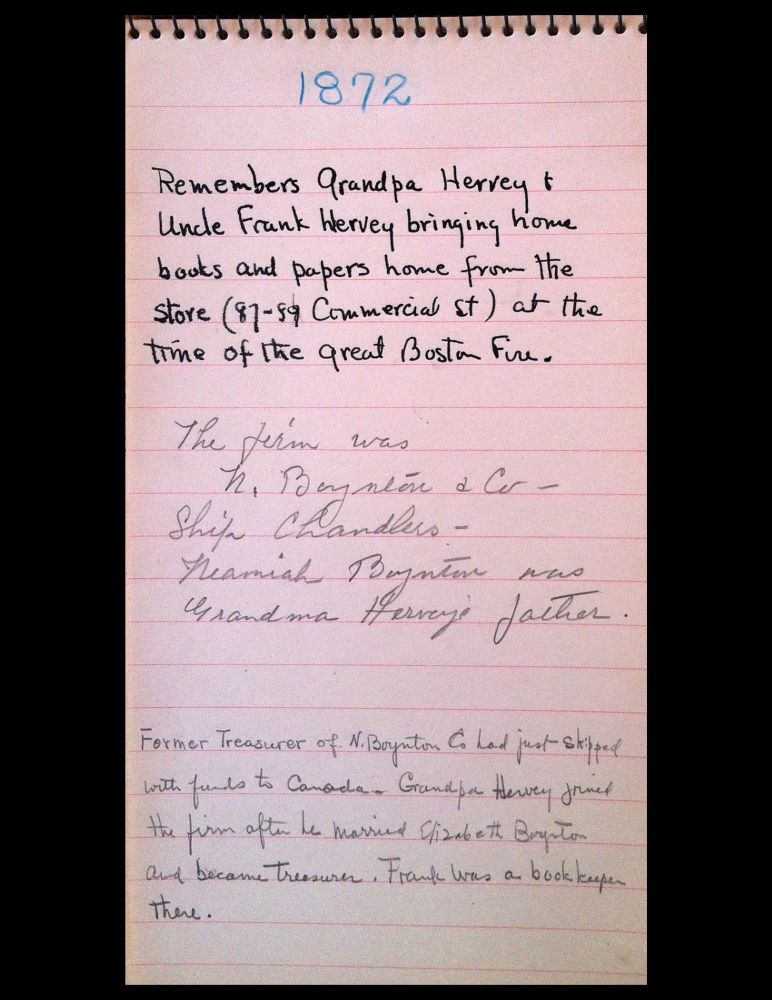 1872
Remembers Grandpa Hervey &
Uncle Frank Hervey bringing home
books and papers home from the
store (87-89 Commercial St) at the
time of the great Boston Fire.
The firm was
N. Boynton & Co -
Ship Chandlers -
Neamiah Boynton was
Grandma Hervey's father.
Former Treasurer of N. Boynton Co had just skipped
with funds to Canada. Grandpa Hervey joined
the firm after he married Elizabeth Boynton
and became treasurer. Frank was a bookkeeper
there.